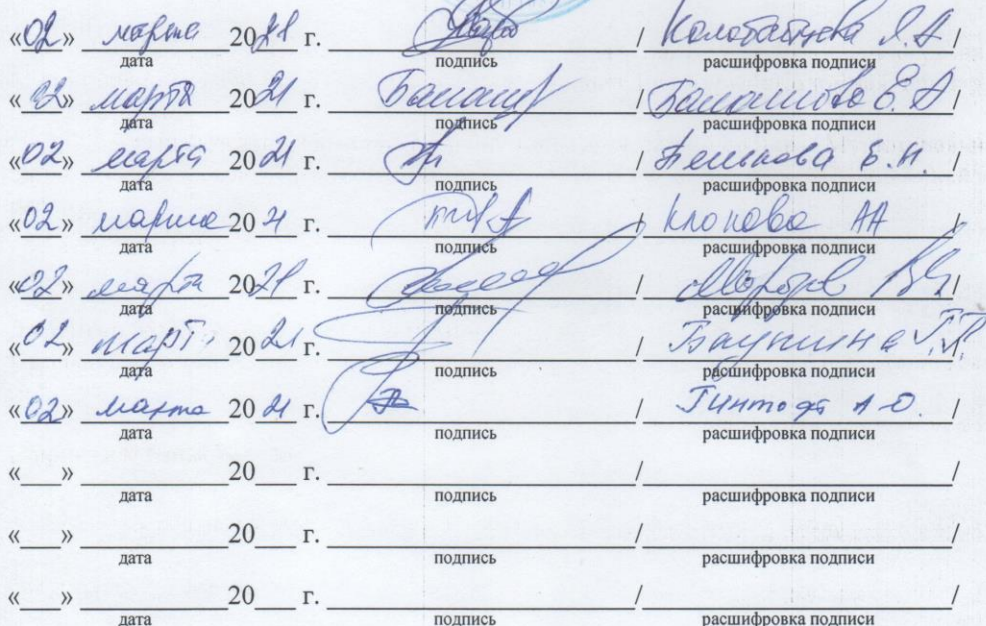 «02» марта 2021 г. / /
дата подпись расшифровка подписи
«02» марта 2021 г. Балаш / Балашова Е.А /
дата подпись расшифровка подписи
«02» марта 2021 г. / Белькова Е.Н. /
дата подпись расшифровка подписи
«02» марта 2021 г. / Клопова АА /
дата подпись расшифровка подписи
«02» марта 2021 г. / /
дата подпись расшифровка подписи
«02» марта 2021 г. / /
дата подпись расшифровка подписи
«02» марта 2021 г. / А.О. /
дата подпись расшифровка подписи
«__» ____ 20__ г. ____ / ____ /
дата подпись расшифровка подписи
«__» ____ 20__ г. ____ / ____ /
дата подпись расшифровка подписи
«__» ____ 20__ г. ____ / ____ /
дата подпись расшифровка подписи